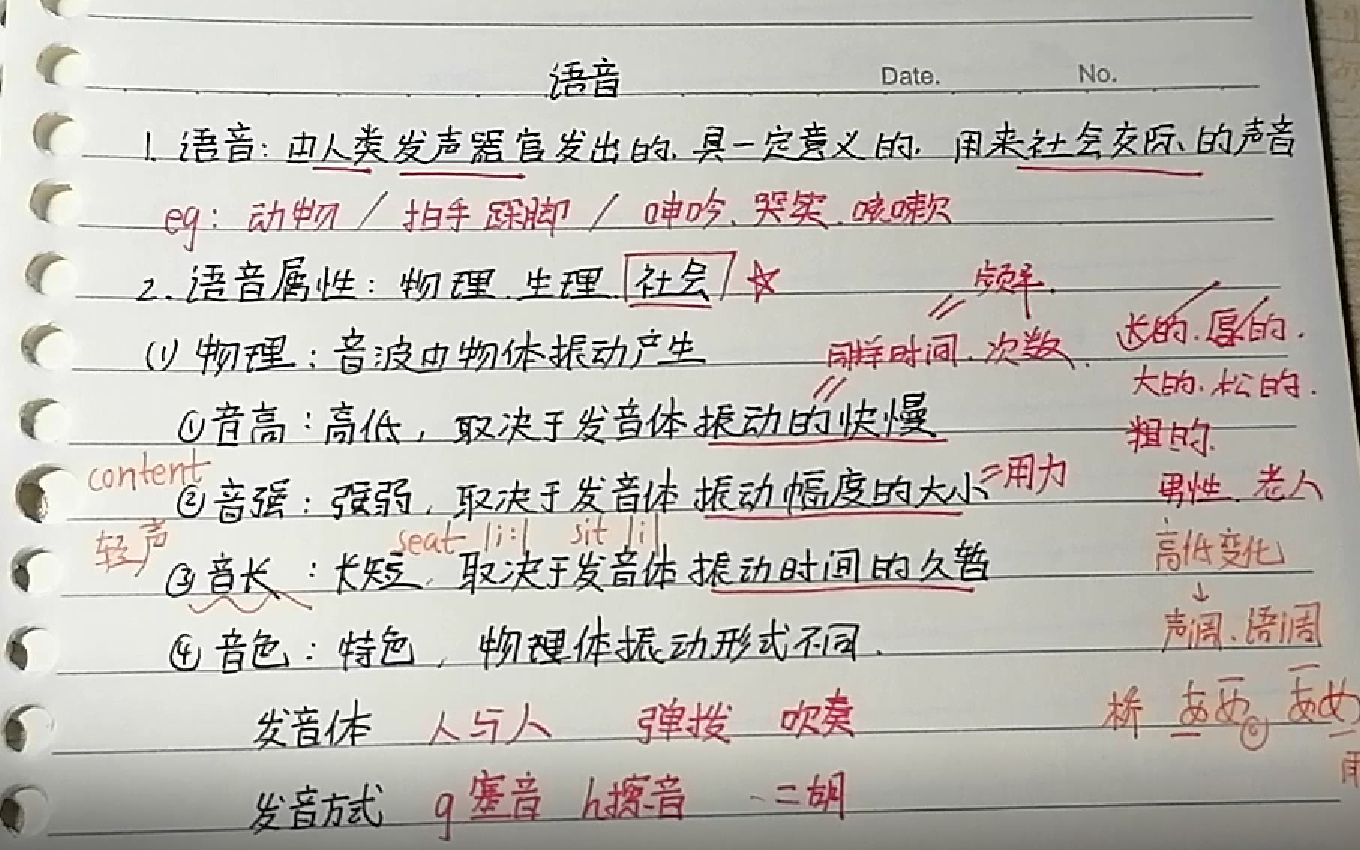 语音 Date. No.
1. 语音：由人类发声器官发出的、具一定意义的、用来社会交际、的声音
eg：动物 / 拍手 跺脚 / 呻吟、哭笑、咳嗽
2. 语音属性：物理、生理、社会 ☆
频率.
(1) 物理：音波由物体振动产生
同样时间、次数.
长的.厚的.
大的.松的.
①音高：高低，取决于发音体振动的快慢
粗的.
content
②音强：强弱，取决于发音体振动幅度的大小=用力
男性、老人
轻声
seat |i:| sit |i|
高低变化
③音长：长短，取决于发音体振动时间的久暂
↓
声调、语调
④音色：特色，物理体振动形式不同.
发音体 人与人 弹拨 吹奏
桥
发音方式 g 塞音 h擦音 、二胡
雨